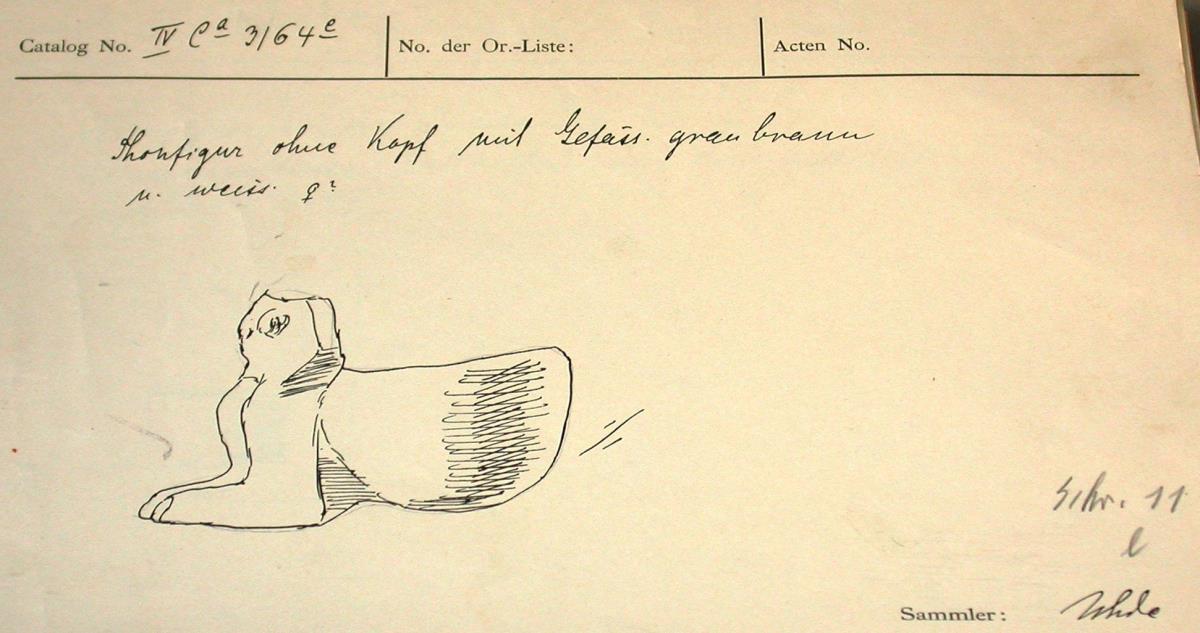 Catalog No. IV Ca 3164e
No. der Or.-Liste:
Acten No.
Thonfigur ohne Kopf mit Gefäss. graubraun
u. weiss. ♀?
Schr. 11
l
Sammler: Uhde